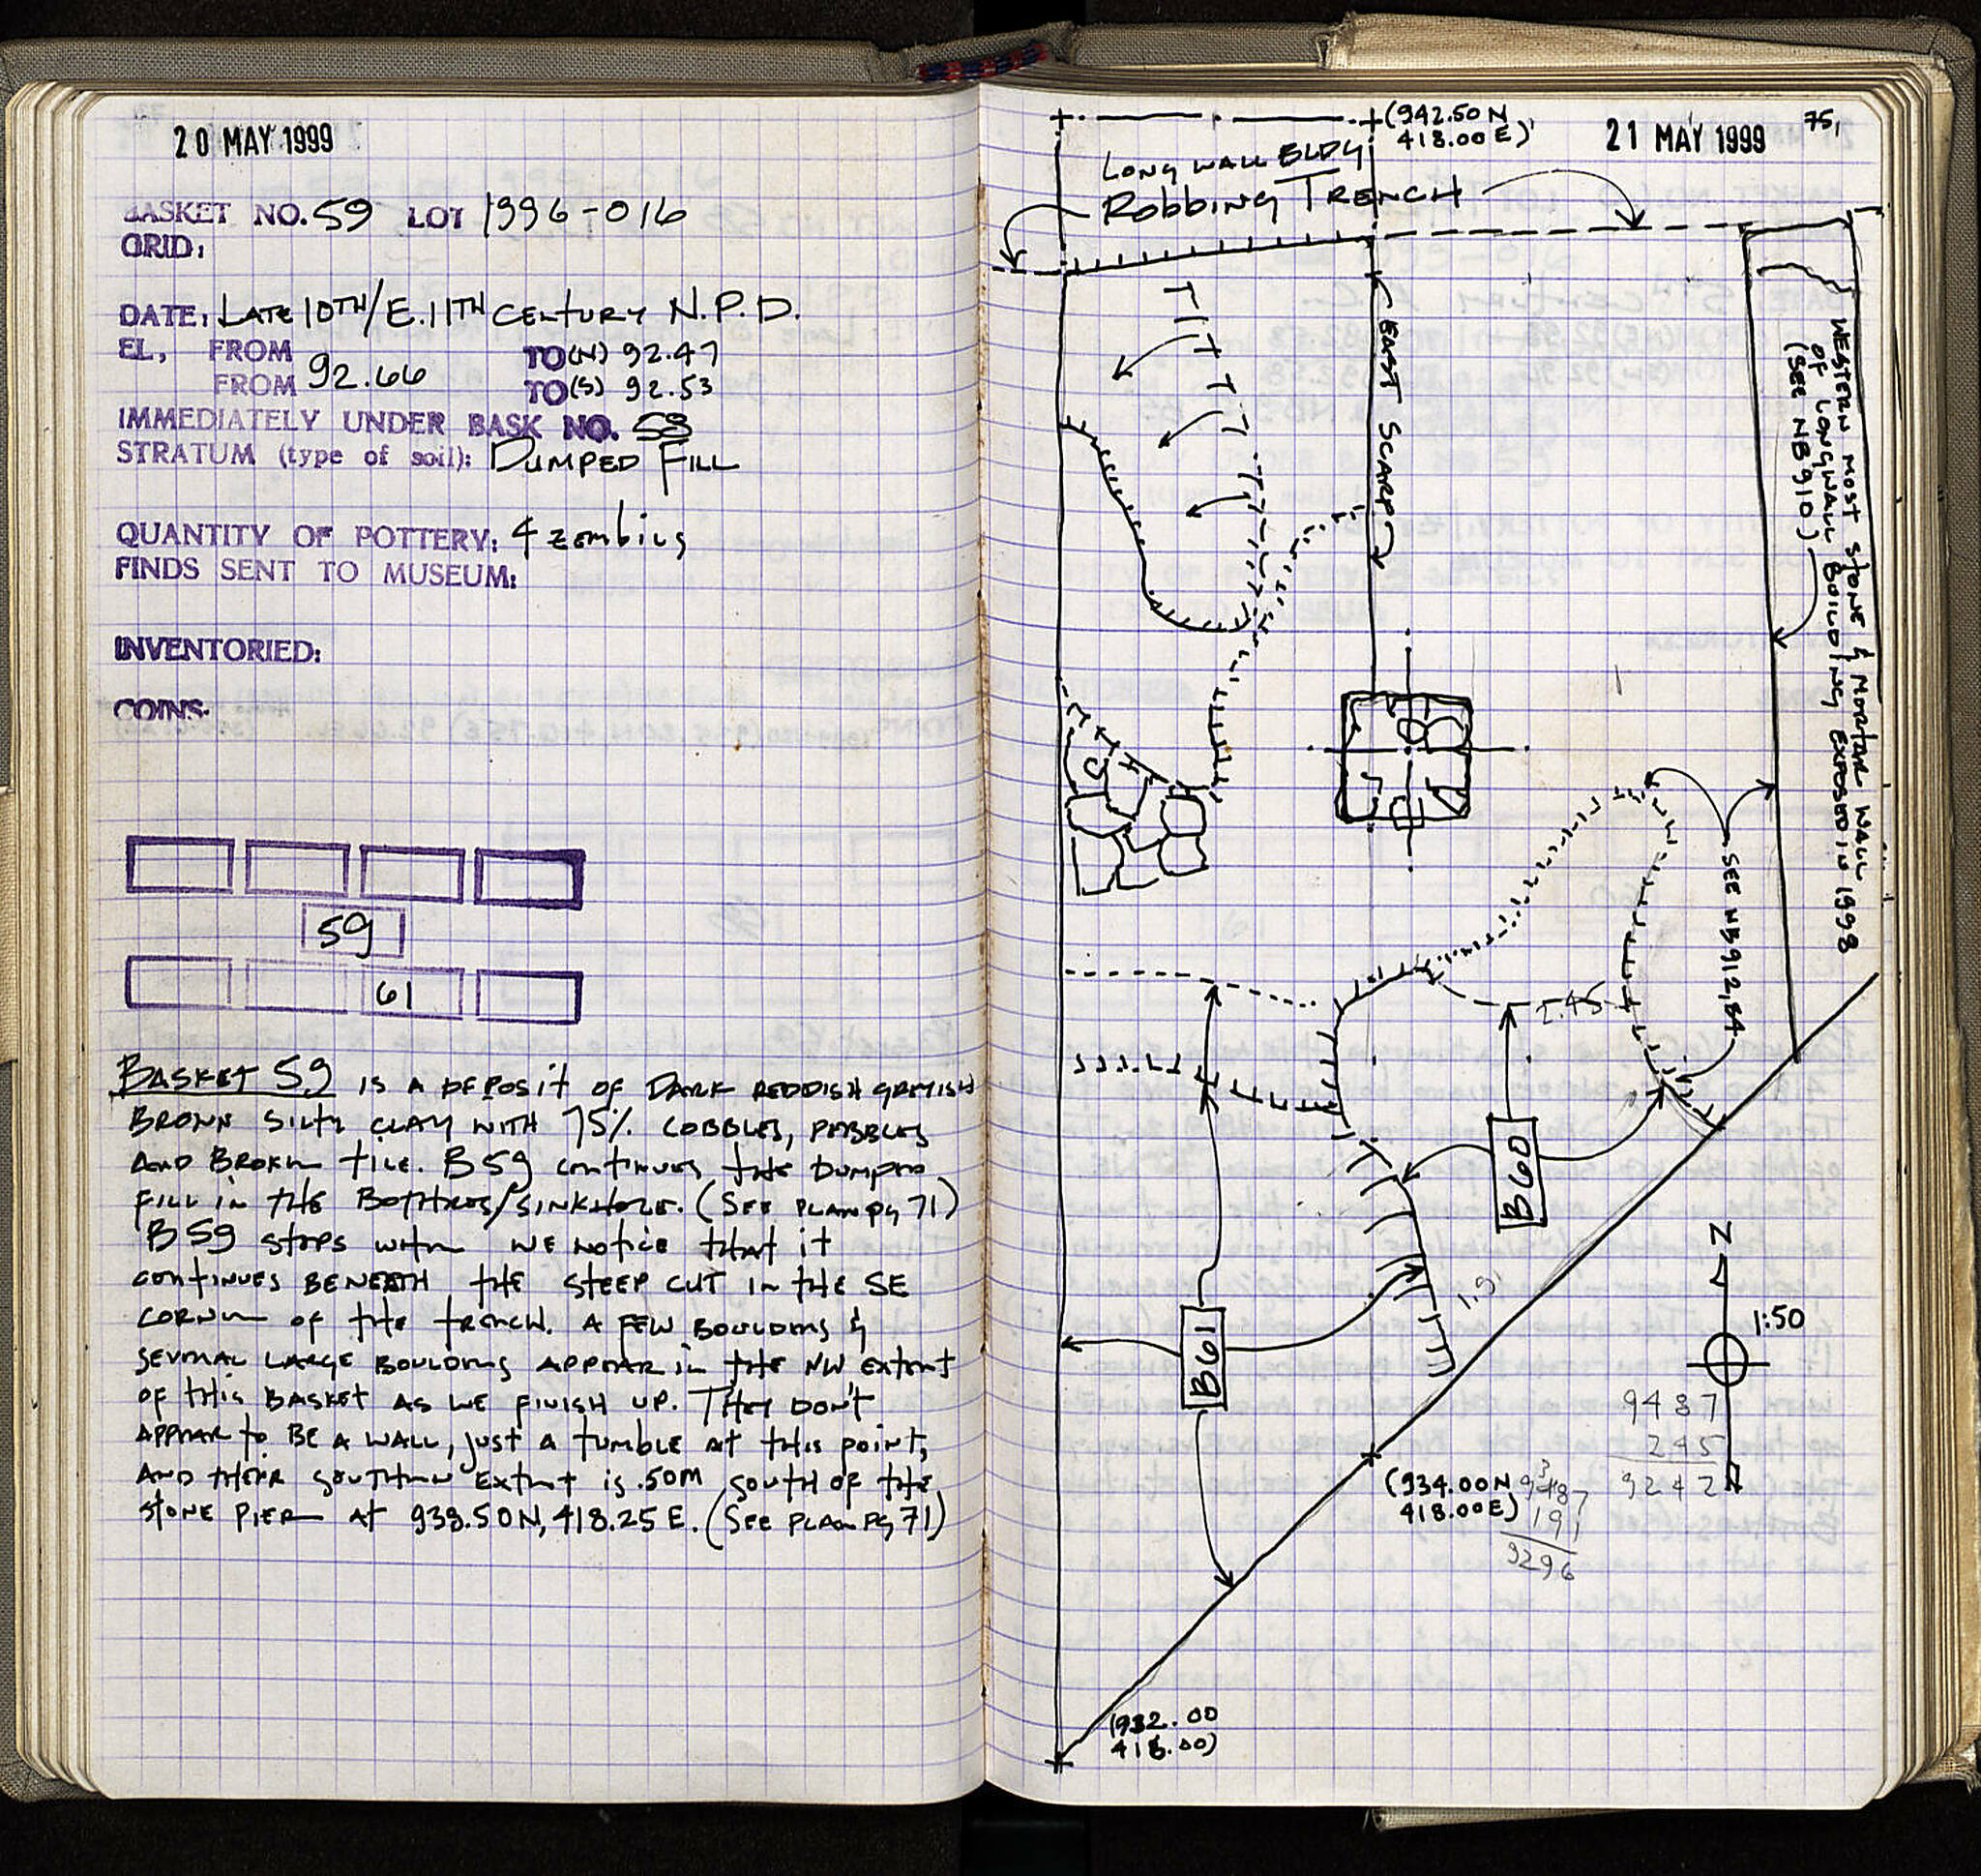 20 MAY 1999
BASKET NO. 59 LOT 1996-016
GRID:
DATE: LATE 10TH/E. 11TH CENTURY N.P.D.
EL, FROM 92.66 TO(N) 92.47
FROM TO(S) 92.53
IMMEDIATELY UNDER BASK NO. 58
STRATUM (type of soil): DUMPED FILL
QUANTITY OF POTTERY: 4 zembius
FINDS SENT TO MUSEUM:
INVENTORIED:
COINS:
59
61
BASKET 59 IS A DEPOSIT OF DARK REDDISH GREYISH
BROWN SILTY CLAY WITH 75% COBBLES, PEBBLES
AND BROKEN TILE. B59 CONTINUES THE DUMPED
FILL IN THE BOTHROS/SINKHOLE. (SEE PLAN PG 71)
B59 STOPS WHEN WE NOTICE THAT IT
CONTINUES BENEATH THE STEEP CUT IN THE SE
CORNER OF THE TRENCH. A FEW BOULDERS &
SEVERAL LARGE BOULDERS APPEAR IN THE NW EXTENT
OF THIS BASKET AS WE FINISH UP. THEY DON'T
APPEAR TO BE A WALL, JUST A TUMBLE AT THIS POINT,
AND THEIR SOUTHERN EXTENT IS .50M SOUTH OF THE
STONE PIER AT 938.50N, 418.25E. (SEE PLAN PG 71)
75,
21 MAY 1999
(942.50N
418.00E)
LONG WALL BLDG
ROBBING TRENCH
EAST SCARP
WESTERN MOST STONE & MORTAR WALL
OF LONGWALL BUILDING EXPOSED IN 1998
(SEE NB 910)
SEE NB 912, 84
2.45
B60
1.91
B61
N
1:50
9487
245
9242
(934.00N
418.00E)
9487
191
9296
(932.00
416.00)